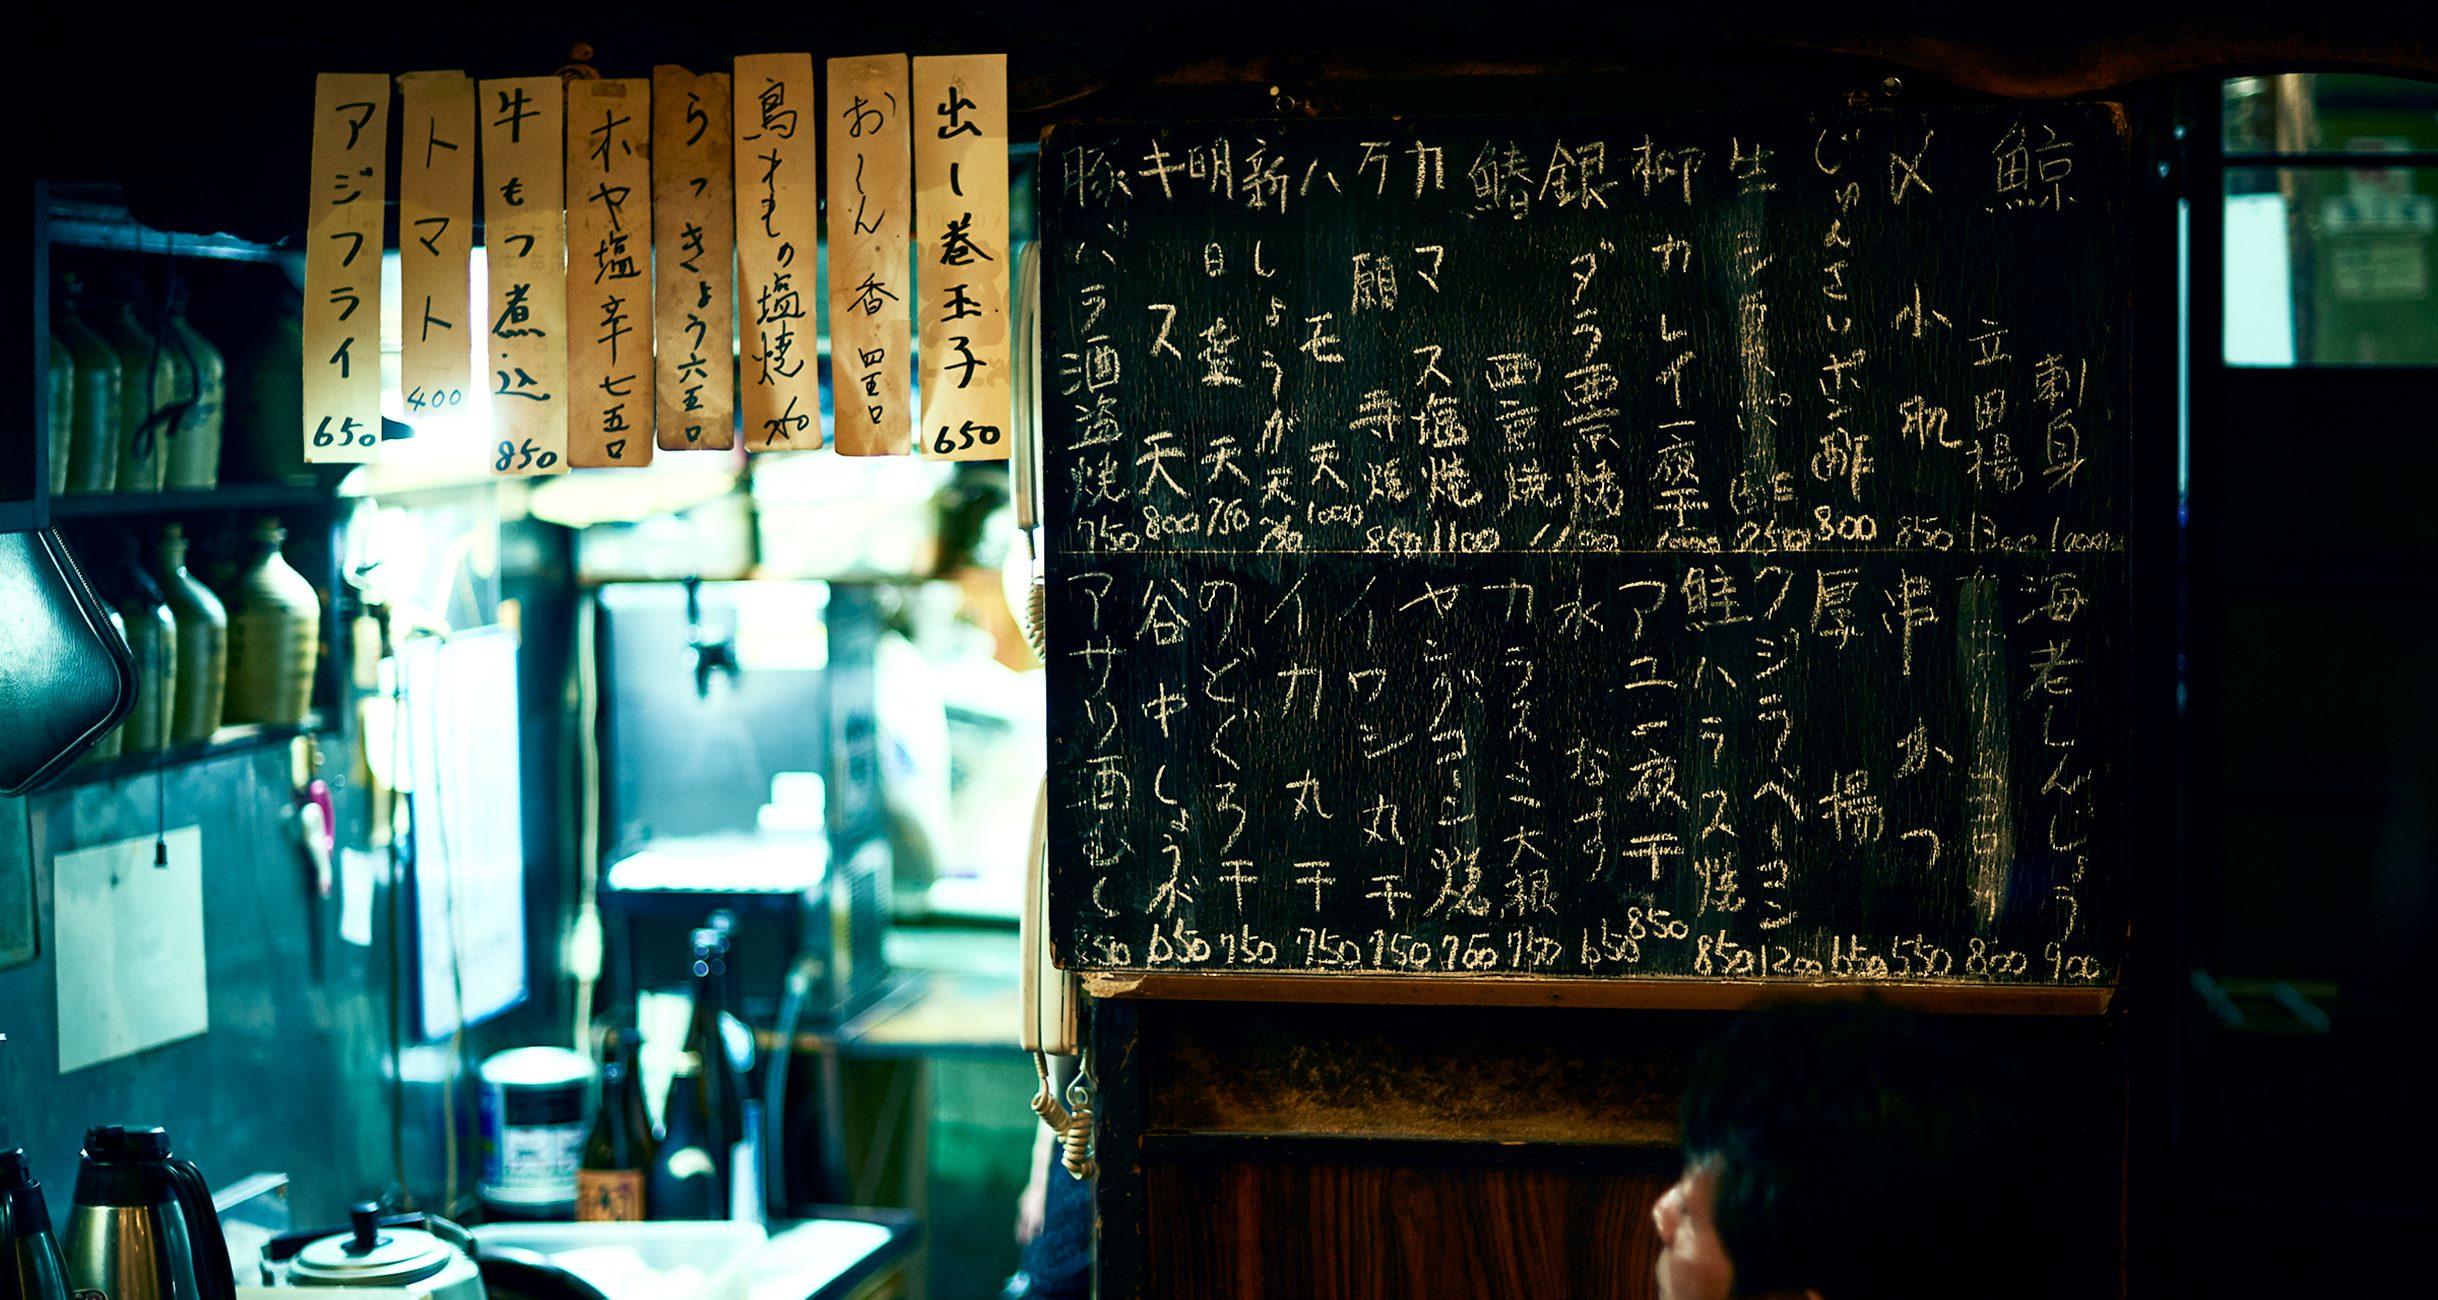 出し巻玉子 650
おしん香 四五〇
鳥ももの塩焼
らっきょう六五〇
ホヤ塩辛七五〇
牛もつ煮込 850
トマト 400
アジフライ 650
鯨 刺身 1000
立田揚 1300
〆小肌 850
じゅんさいポン酢 800
柳カレイ一夜干
銀ダラ西京焼 1100
鰆西京焼
カマス塩焼 1100
万願寺焼 850
ハモ天 1000
新しょうが天
明日葉天 750
キス天 800
豚バラ酒盗焼 750
海老しんじょう 900
800
串かつ 550
厚揚 650
クジラベーコン 1200
鮭ハラス焼 850
アユ一夜干 850
水なす 650
カラスミ大根 750
ヤングコーン焼 700
イワシ丸干 750
イカ丸干 750
のどぐろ干 750
谷中しょうが 650
アサリ酒むし